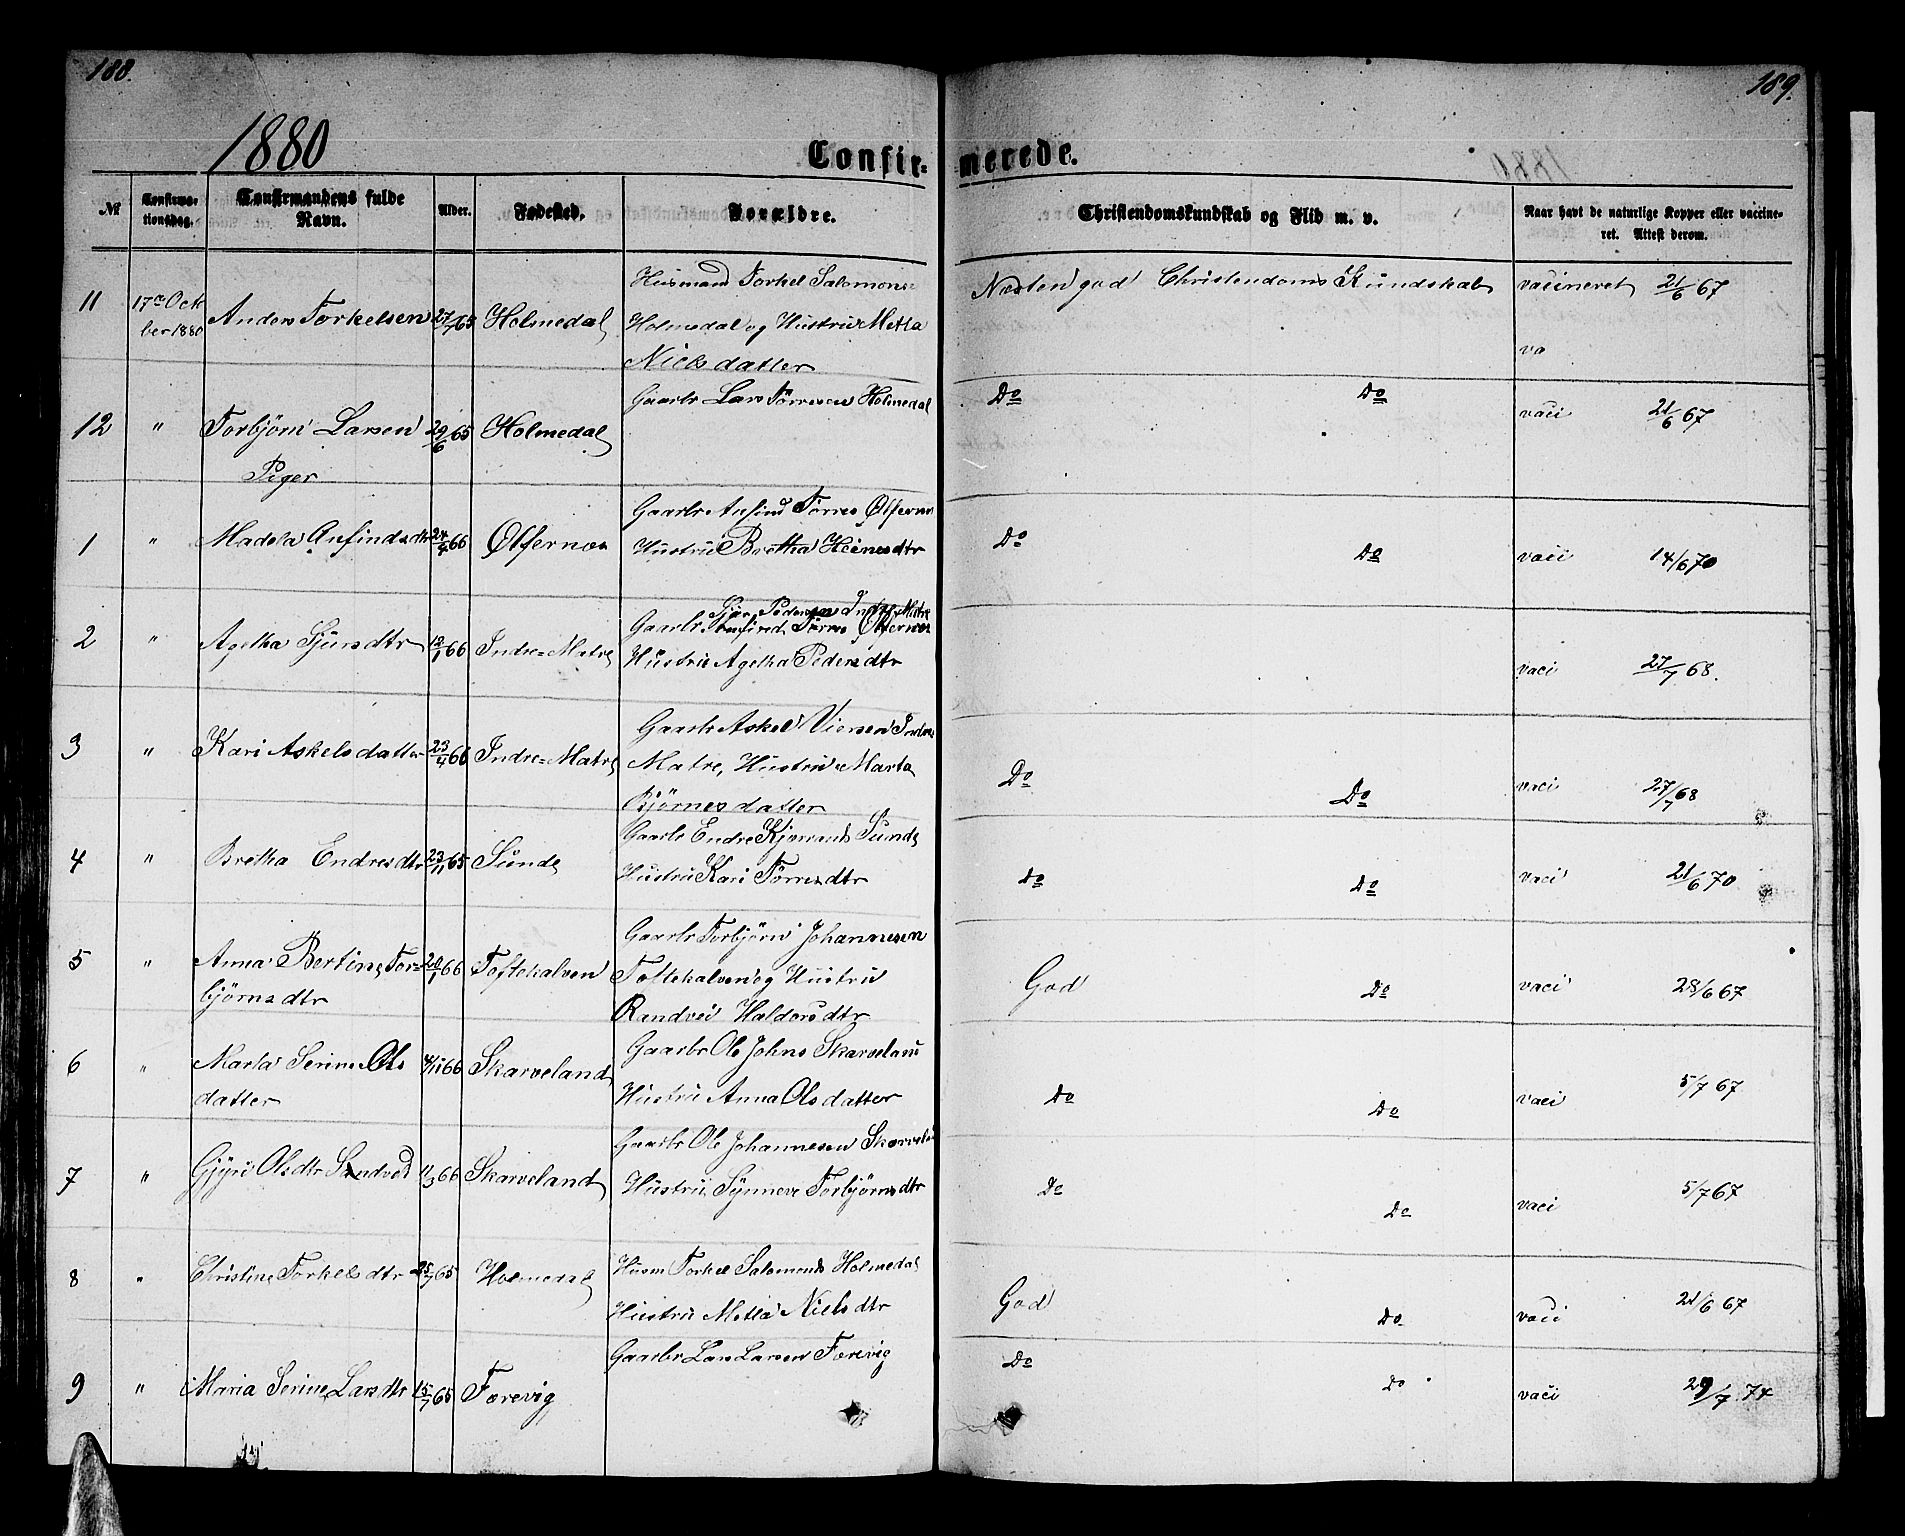 188.
189.
1880
Confir-
merede.
№
Confirma-
tionsdag.
Confirmandens fulde
Navn.
Alder.
Fødested.
Forældre.
Christendomskundskab og Flid m. v.
Naar havt de naturlige Kopper eller vaccine-
ret. Attest derom.
11 17de Octo
ber 1880 Anders Torkelsen 27/7 65 Holmedal
Husmand Torkel Salomons
Holmedal og Hustru Metla
Nielsdatter
Næsten god Christendoms Kundskab vacineret 21/6 67
va
12 " Torbjörn Larsen 29/6 65 Holmedal Gaarbr Lars Törresen Holmedal Do Do vaci 21/6 67
Piger
1 " Madela Anfindsdtr 24/4 66 Ølfernes
Gaarbr Anfind Törres Ølfernes
Hustru Bretha Heinesdtr
Do Do vaci 14/6 70
2 " Agetha Sjursdtr 12/1 66 Indre=Matre
Sjur Pedersen Indre Matre
Gaarbr Anfind Törres Ølfernes
Hustru Agetha Pedersdtr
vaci 27/7 68.
3 " Kari Askelsdatter 23/4 66 Indre=Matre
Gaarbr Askel Viersen Indre
Matre, Hustru Marta
Björnesdatter
Do Do vaci 27/7 68
4 " Bretha Endresdtr 23/11 65 Sunde
Gaarbr Endre Sunde
Hustru Kari Törresdtr
Do Do vaci 21/6 70
5 " Anna Bertine Tor=
björnsdtr 20/1 66 Toftekalven
Gaarbr Torbjörn Johannesen
Toftekalven og Hustru
Randvei Haldorsdtr
God Do vaci 28/6 67
6 " Marta Serine Ols
datter 4/11 66 Skarveland
Gaarbr Ole Johns Skarveland
Hustru Anna Olsdatter
Do Do vaci 5/7 67
7 " Gjyri Olsdtr Sandved 11/3 66 Skarveland
Gaarbr Ole Johannesen Skarveland
Hustru Synneve Torbjörnsdtr
Do Do vaci 5/7 67
8 " Christine Torkelsdtr 25/7 65 Holmedal
Husm Torkel Salomons Holmedal
Hustru Metla Nielsdtr
God Do vaci 21/6 67
9 " Maria Serine Larsdtr 15/7 65 Færevig
Gaarbr Lars Larsen Færevig
Do Do vaci 29/7 74